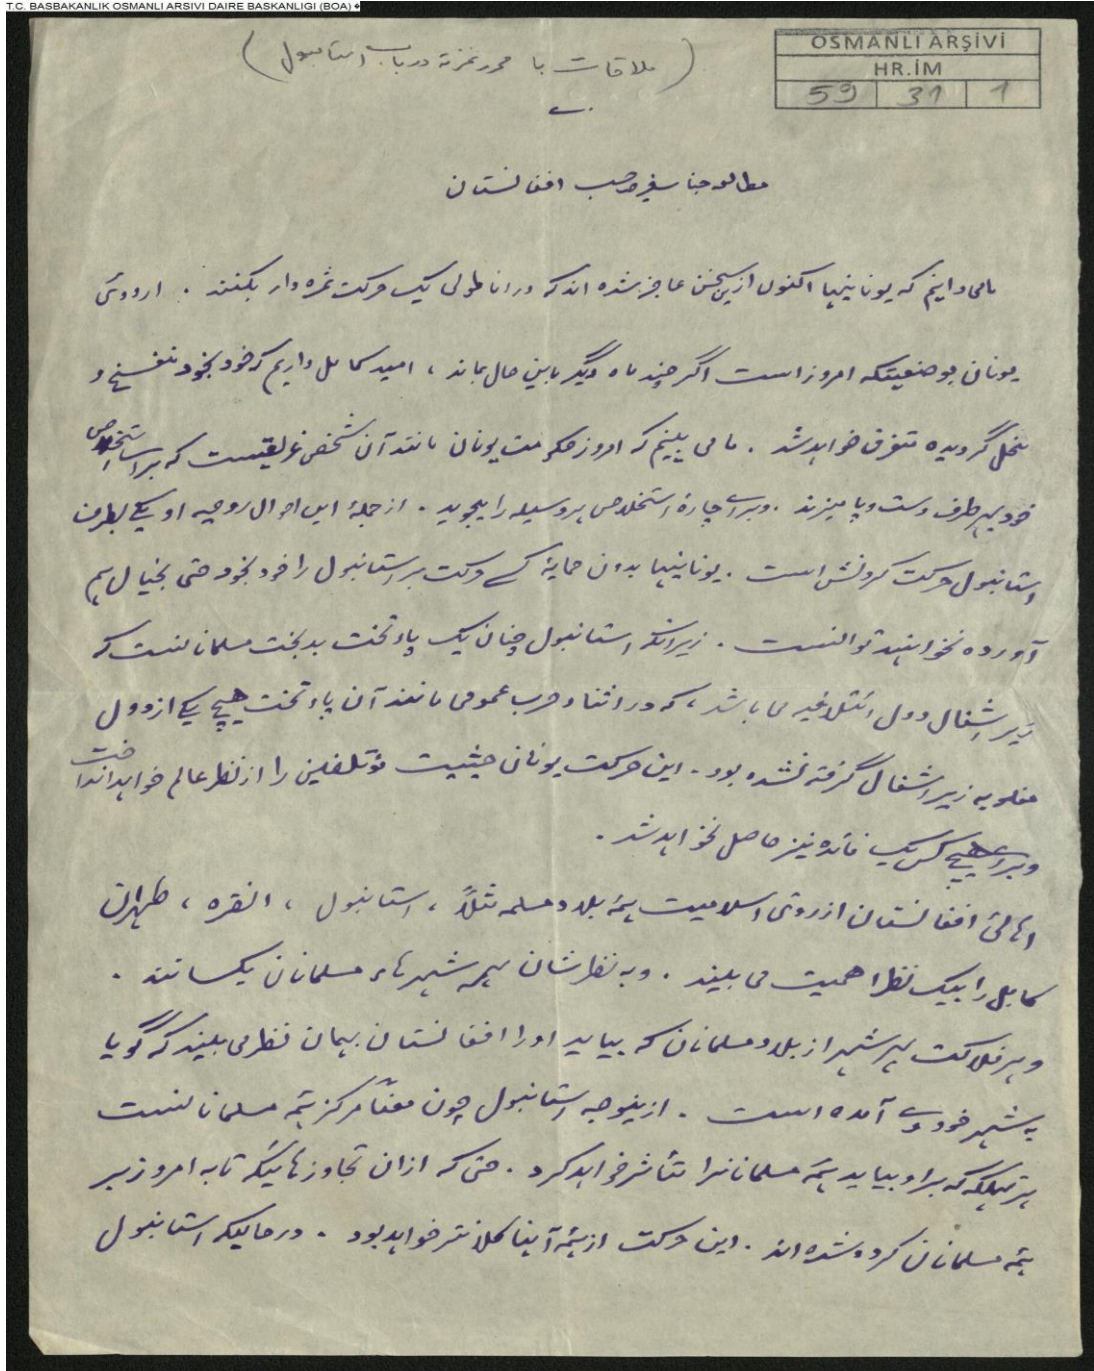 T.C. BASBAKANLIK OSMANLI ARSIVI DAIRE BASKANLIGI (BOA)
OSMANLI ARŞİVİ
HR.İM
59 31 1
(ملاقات با محرر غزته در باب استانبول)
مطالعه جناب سفیر صاحب افغانستان
ما می دانیم که یونانیها اکنون ازین سخن عاجز شده اند که در اناطولی یک حرکت ثمره دار بکنند . اردوی
یونان بوضعیتیکه امروز است اگر چند ماه دیگر باین حال بماند ، امید کامل داریم که خود بخود تفسخ و
منحل گردیده متفرق خواهد شد . ما می بینیم که امروز حکومت یونان مانند آن شخص غریقیست که برا استخلاص
خود بهر طرف دست و پا میزند . و برای چارهٔ استخلاص هر وسیله را میجوید . از جملهٔ این احوال روحیه او یکی بطرف
استانبول حرکت کردنش است . یونانیها بدون حمایهٔ کسے حرکت بر استانبول را خود بخود حتی بخیال هم
آورده نخواهند توانست . زیرانکه استانبول چنان یک پاءتخت بدبخت مسلمانانست که
زیر اشغال دول ائتلافیه می باشد ، که در اثناء حرب عمومی مانند آن پاءتخت هیچ یکے از دول
مغلوبه زیر اشغال گرفته نشده بود . این حرکت یونان حیثیت مؤتلفین را از نظر عالم خواهد انداخت
و برای هیچ کس یک فائده نیز حاصل نخواهد شد .
اهالئ افغانستان از روی اسلامیت همهٔ بلاد مسلمه مثلاً ، استانبول ، انقره ، طهران
کابل را بیک نظر اهمیت می بینند . و به نظر شان همه شهرهاء مسلمانان یکسانند .
و هر فلاکت بهر شهر از بلاد مسلمانان که بیاید او را افغانستان بهمان نظر می بینند که گویا
به شهر خود وی آمده است . ازینوجه استانبول چون معناً مرکز همهٔ مسلمانانست
هر تهلکه که بر او بیاید همهٔ مسلمانانرا متأثر خواهد کرد . حتی که ازان تجاوزهائیکه تا به امروز بر
همهٔ مسلمانان کرده شده اند . این حرکت از همهٔ آنها کلانتر خواهد بود . در حالیکه استانبول